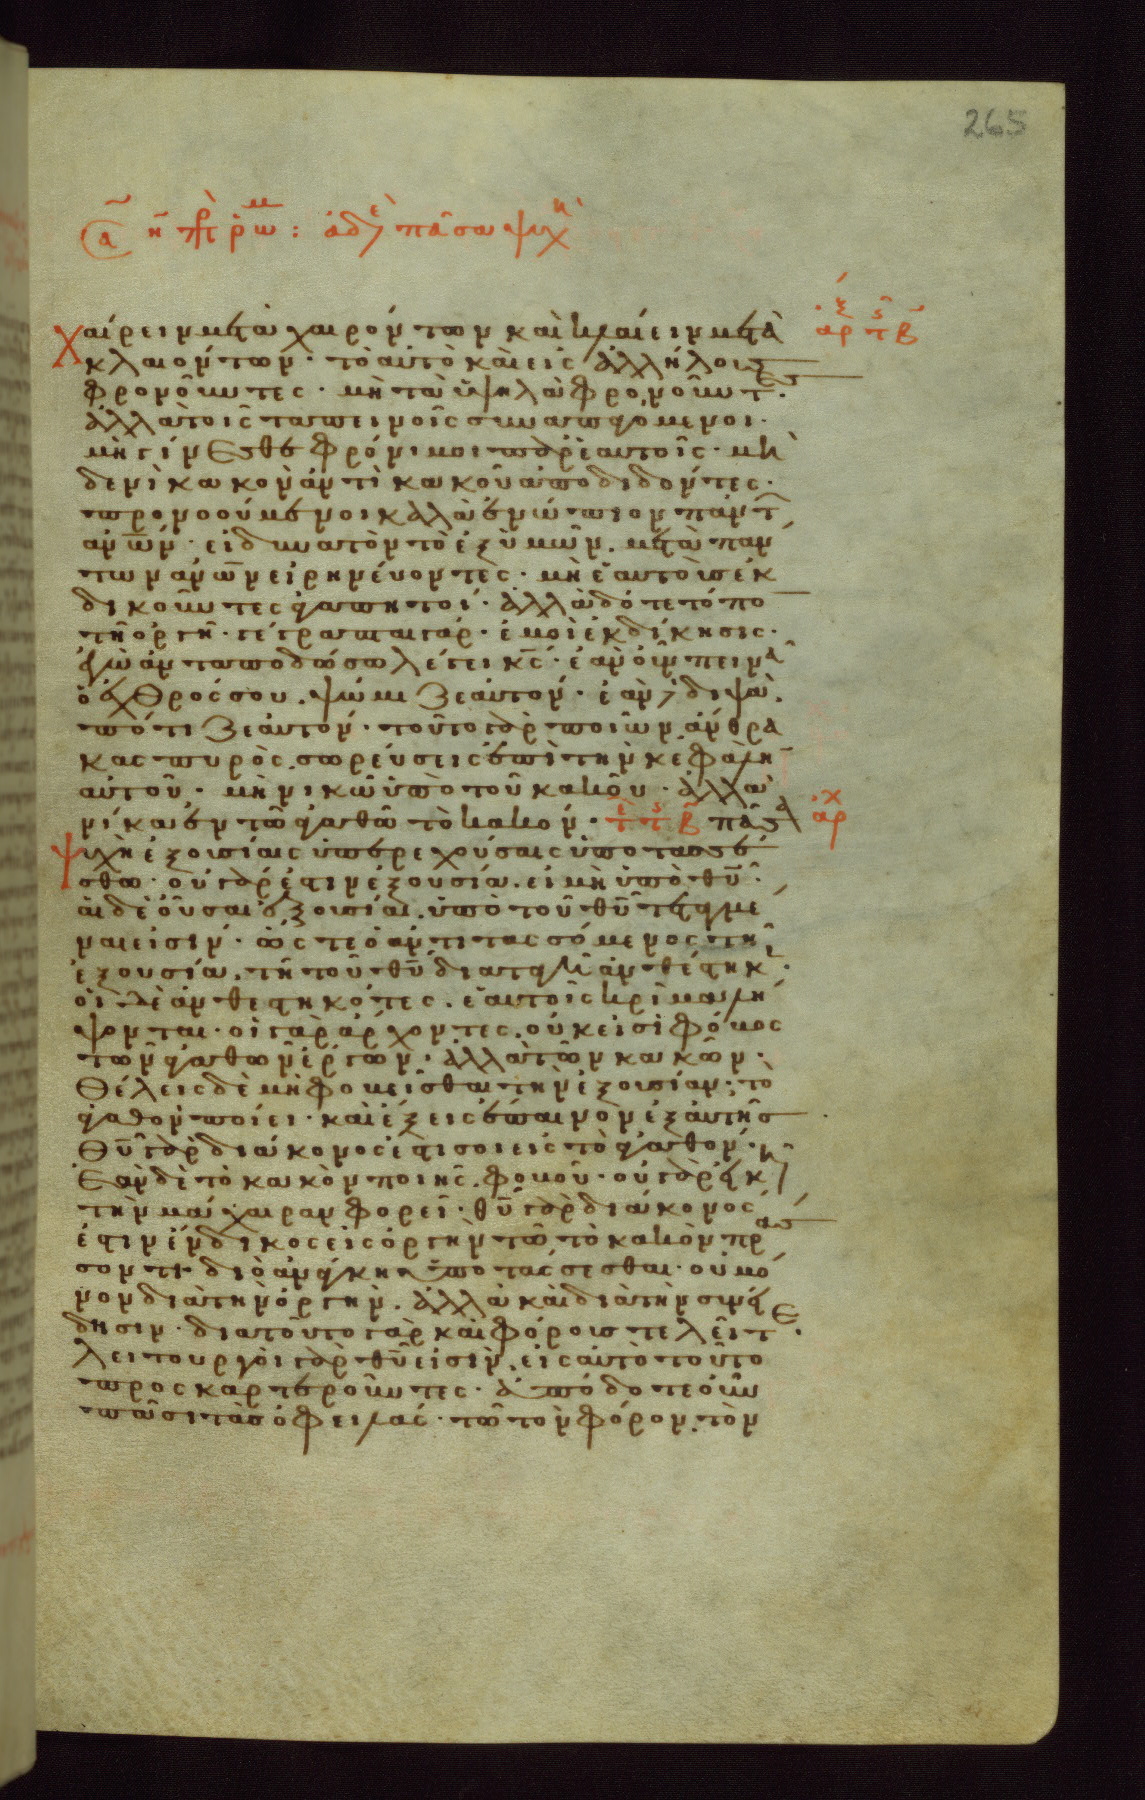 265
ἀδελφοὶ πᾶσα ψυχὴ
χαίρειν μετὰ χαιρόντων καὶ κλαίειν μετὰ
κλαιόντων · τὸ αὐτὸ καὶ εἰς ἀλλήλους
φρονοῦντες · μὴ τὰ ὑψηλὰ φρονοῦντες ·
ἀλλὰ τοῖς ταπεινοῖς συναπαγόμενοι ·
μὴ γίνεσθε φρόνιμοι παρ' ἑαυτοῖς · μη
δενὶ κακὸν ἀντὶ κακοῦ ἀποδιδόντες ·
προνοούμενοι καλὰ ἐνώπιον πάντ
ανων · εἰ δυνατὸν τὸ ἐξ ὑμῶν · μετὰ πάν
των ανων εἰρηνεύοντες · μὴ ἑαυτοὺς ἐκ
δικοῦντες ἀγαπητοί · ἀλλὰ δότε τόπο
τῇ ὀργῇ · γέγραπται γάρ · ἐμοὶ ἐκδίκησις ·
ἐγὼ ἀνταποδώσω λέγει κς · ἐὰν οὖν πεινᾷ
ὁ ἐχθρός σου · ψώμιζε αὐτόν · ἐὰν διψᾷ ·
πότιζε αὐτόν · τοῦτο γὰρ ποιῶν ἄνθρα
κας πυρὸς σωρεύσεις ἐπὶ τὴν κεφαλὴν
αὐτοῦ · μὴ νικῶ ὑπὸ τοῦ κακοῦ · ἀλλὰ
νίκα ἐν τῷ ἀγαθῷ τὸ κακόν · πᾶσα
ψυχὴ ἐξουσίαις ὑπερεχούσαις ὑποτασσέ
σθω · οὐ γὰρ ἐστιν ἐξουσία · εἰ μὴ ὑπὸ θυ ·
αἱ δὲ οὖσαι ἐξουσίαι · ὑπὸ τοῦ θυ τεταγμέ
ναι εἰσίν · ὥστε ὁ ἀντιτασσόμενος τῇ
ἐξουσίᾳ · τῇ τοῦ θυ διαταγῇ ἀνθέστηκεν ·
οἱ δὲ ἀνθεστηκότες · ἑαυτοῖς κρίμα λή
ψονται · οἱ γὰρ ἄρχοντες · οὐκ εἰσὶ φόβος
τῶν ἀγαθῶν ἔργων · ἀλλὰ τῶν κακῶν ·
θέλεις δὲ μὴ φοβεῖσθαι τὴν ἐξουσίαν · τὸ
ἀγαθὸν ποίει · καὶ ἕξεις ἔπαινον ἐξ αὐτῆς
θυ γὰρ διάκονος ἐστί σοι εἰς τὸ ἀγαθόν ·
ἐὰν δὲ τὸ κακὸν ποιῇς · φοβοῦ · οὐ γὰρ εἰκῆ
τὴν μάχαιραν φορεῖ · θυ γὰρ διάκονος
ἐστιν ἔκδικος εἰς ὀργὴν τῷ τὸ κακὸν πράσ
σοντι · διὸ ἀνάγκη ὑποτάσσεσθαι · οὐ μό
νον διὰ τὴν ὀργήν · ἀλλὰ καὶ διὰ τὴν συνεί
δησιν · διὰ τοῦτο γὰρ καὶ φόρους τελεῖτε ·
λειτουργοὶ γὰρ θυ εἰσὶν · εἰς αὐτὸ τοῦτο
προσκαρτεροῦντες · ἀπόδοτε οὖν
πᾶσι τὰς ὀφειλάς · τῷ τὸν φόρον · τὸν